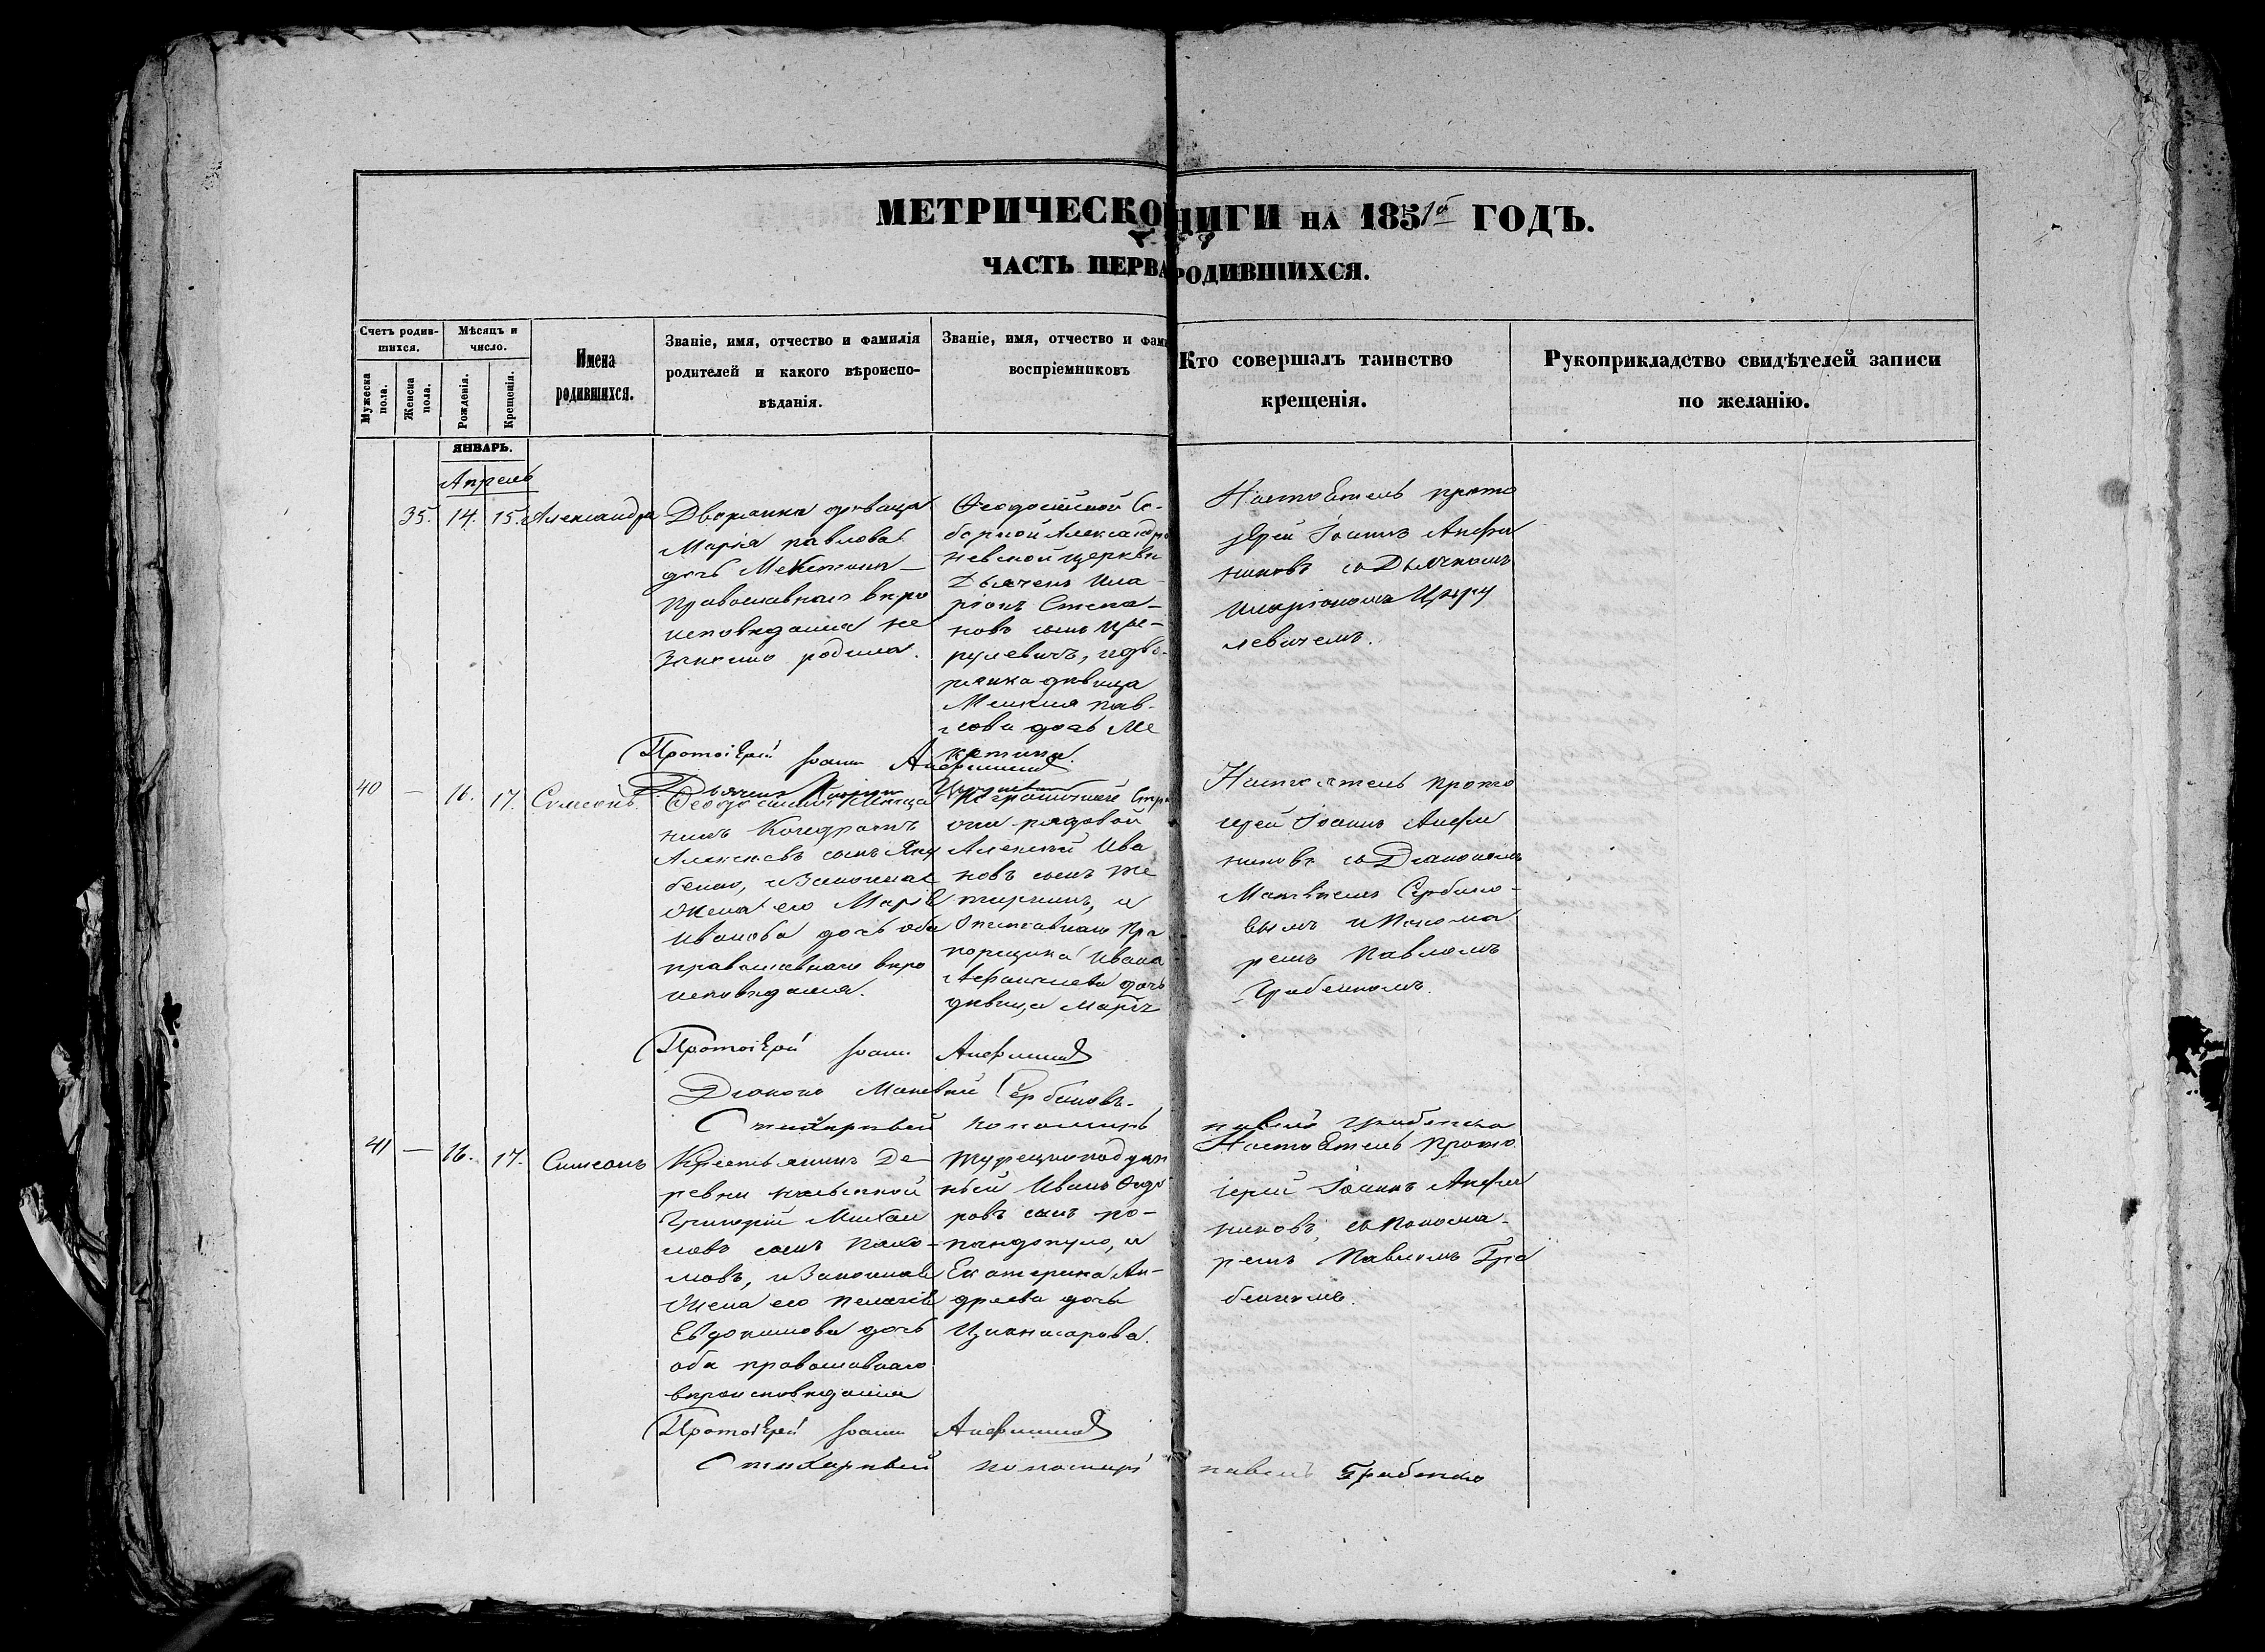 МЕТРИЧЕСКО НИГИ НА 1851го ГОДЪ.
ЧАСТЬ ПЕРВА РОДИВШИХСЯ.
Счетъ родив-
шихся.
Мужеска
пола.
Женска
пола.
Мѣсяцъ и
число.
Рожденія.
Крещенія.
Имена
родившихся.
Званіе, имя, отчество и фамилія
родителей и какого вѣроиспо-
вѣданія.
Званіе, имя, отчество и фами
воспріемниковъ
Кто совершалъ таинство
крещенія.
Рукоприкладство свидѣтелей записи
по желанію.
ЯНВАРЬ.
Апрель
35. 14. 15. Александра
Дворянка дѣвица
Марія Павлова
дочь
Православнаго вѣро
исповѣданія не
законно родила.
Ѳеодосійской Со-
борной Александро
невской церкви
Дьячекъ Ила-
ріонъ Степа-
новъ сынъ Цы-
рулевичъ, и дво-
рянка дѣвица
Павлова дочь Ме
Настоятель прото
іерей Іоаннъ Анфи
никовъ съ Дьячкомъ
Иларіономъ Цыру
левичемъ.
Протоіерей Іоаннъ
Дьячекъ
40 — 16. 17. Симеонъ.
Кондратъ
Алексѣевъ сынъ Яку
бенко, и законная
жена его Марія
Иванова дочь оба
православнаго вѣро
исповѣданія.
Пограничной Стра
жи рядовой
Алексѣй Ива
новъ сынъ
и
Отставнаго Пра
порщика Ивана
дочь
дѣвица Марія
Настоятель прото
іерей Іоаннъ Анфи
никовъ съ Діакономъ
Матвѣемъ Сербино-
вымъ и Понома
ремъ Павломъ
Грабенкомъ.
Протоіерей Іоаннъ
Діаконъ Матвѣй Сербиновъ.
Стихарный пономарь Павелъ Грабенко
41 — 16. 17. Симеонъ
Крестьянинъ De-
ревни
Григорій Михаи
ловъ сынъ Пахо-
мовъ, и законная
жена его Пелагія
Евдокимова дочь
оба православнаго
вѣроисповѣданія
Турецкоподдан
ный Иванъ Ѳедо
ровъ сынъ По-
пандопуло, и
Екатерина Ан-
дреева дочь
Настоятель прото
іерей Іоаннъ Анфи
никовъ, съ понома-
ремъ Павломъ Гра
бенкомъ.
Протоіерей Іоаннъ
Стихарный пономарь Павелъ Грабенко